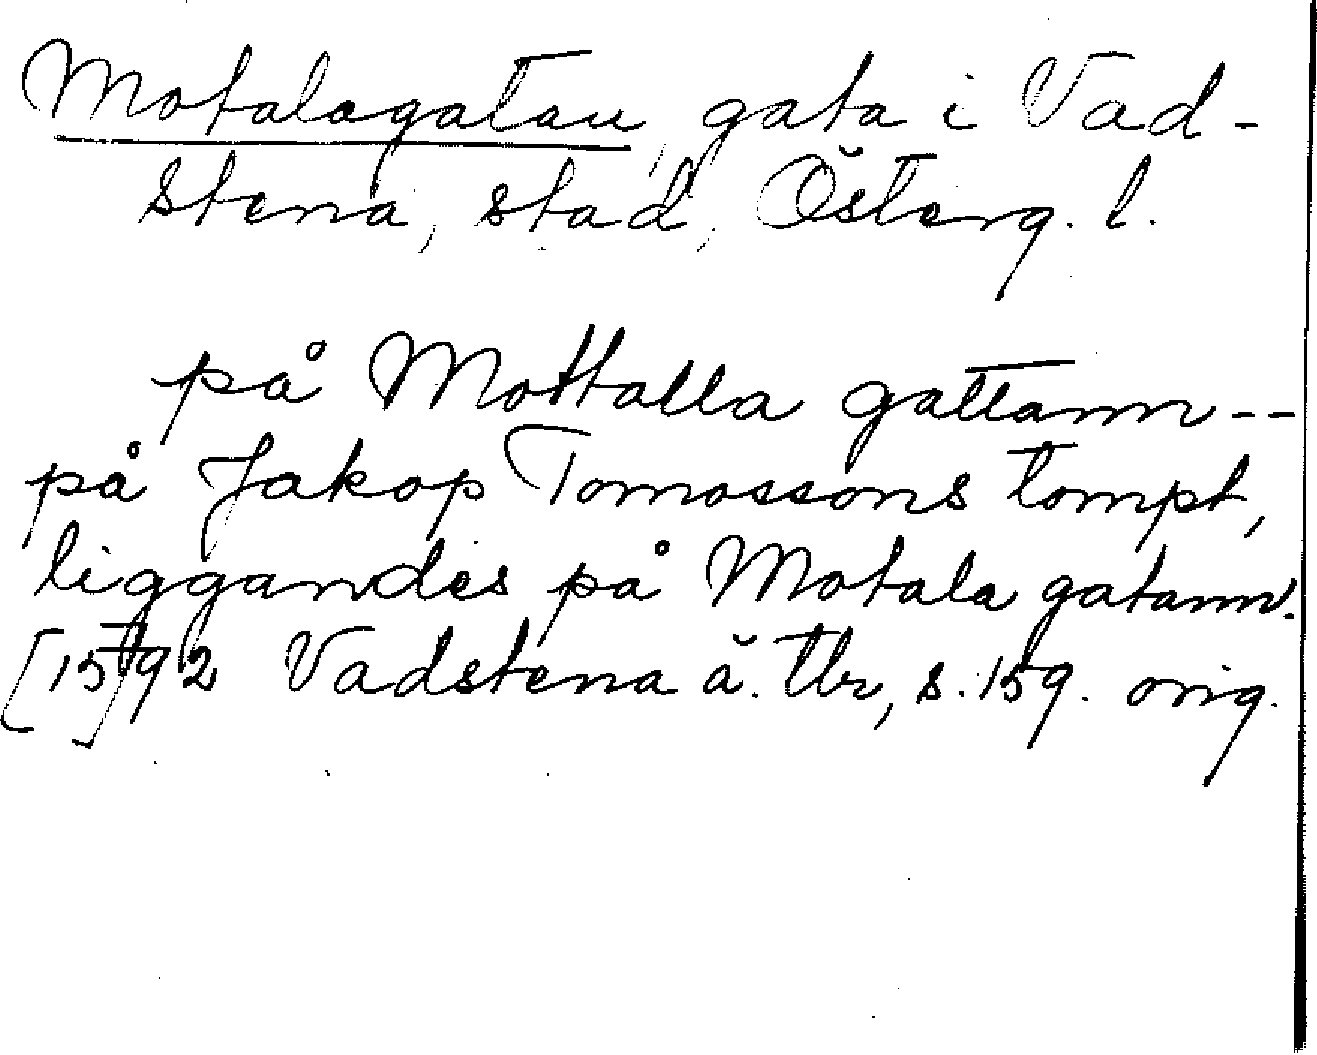 Motalagatan, gata i Vad-
stena, stad, Österg. l.
på Mottalla gattann --
på Jakop Tomossons tompt,
liggandes på Motala gatann.
[15]92 Vadstena ä. Tbr, s. 159. orig.